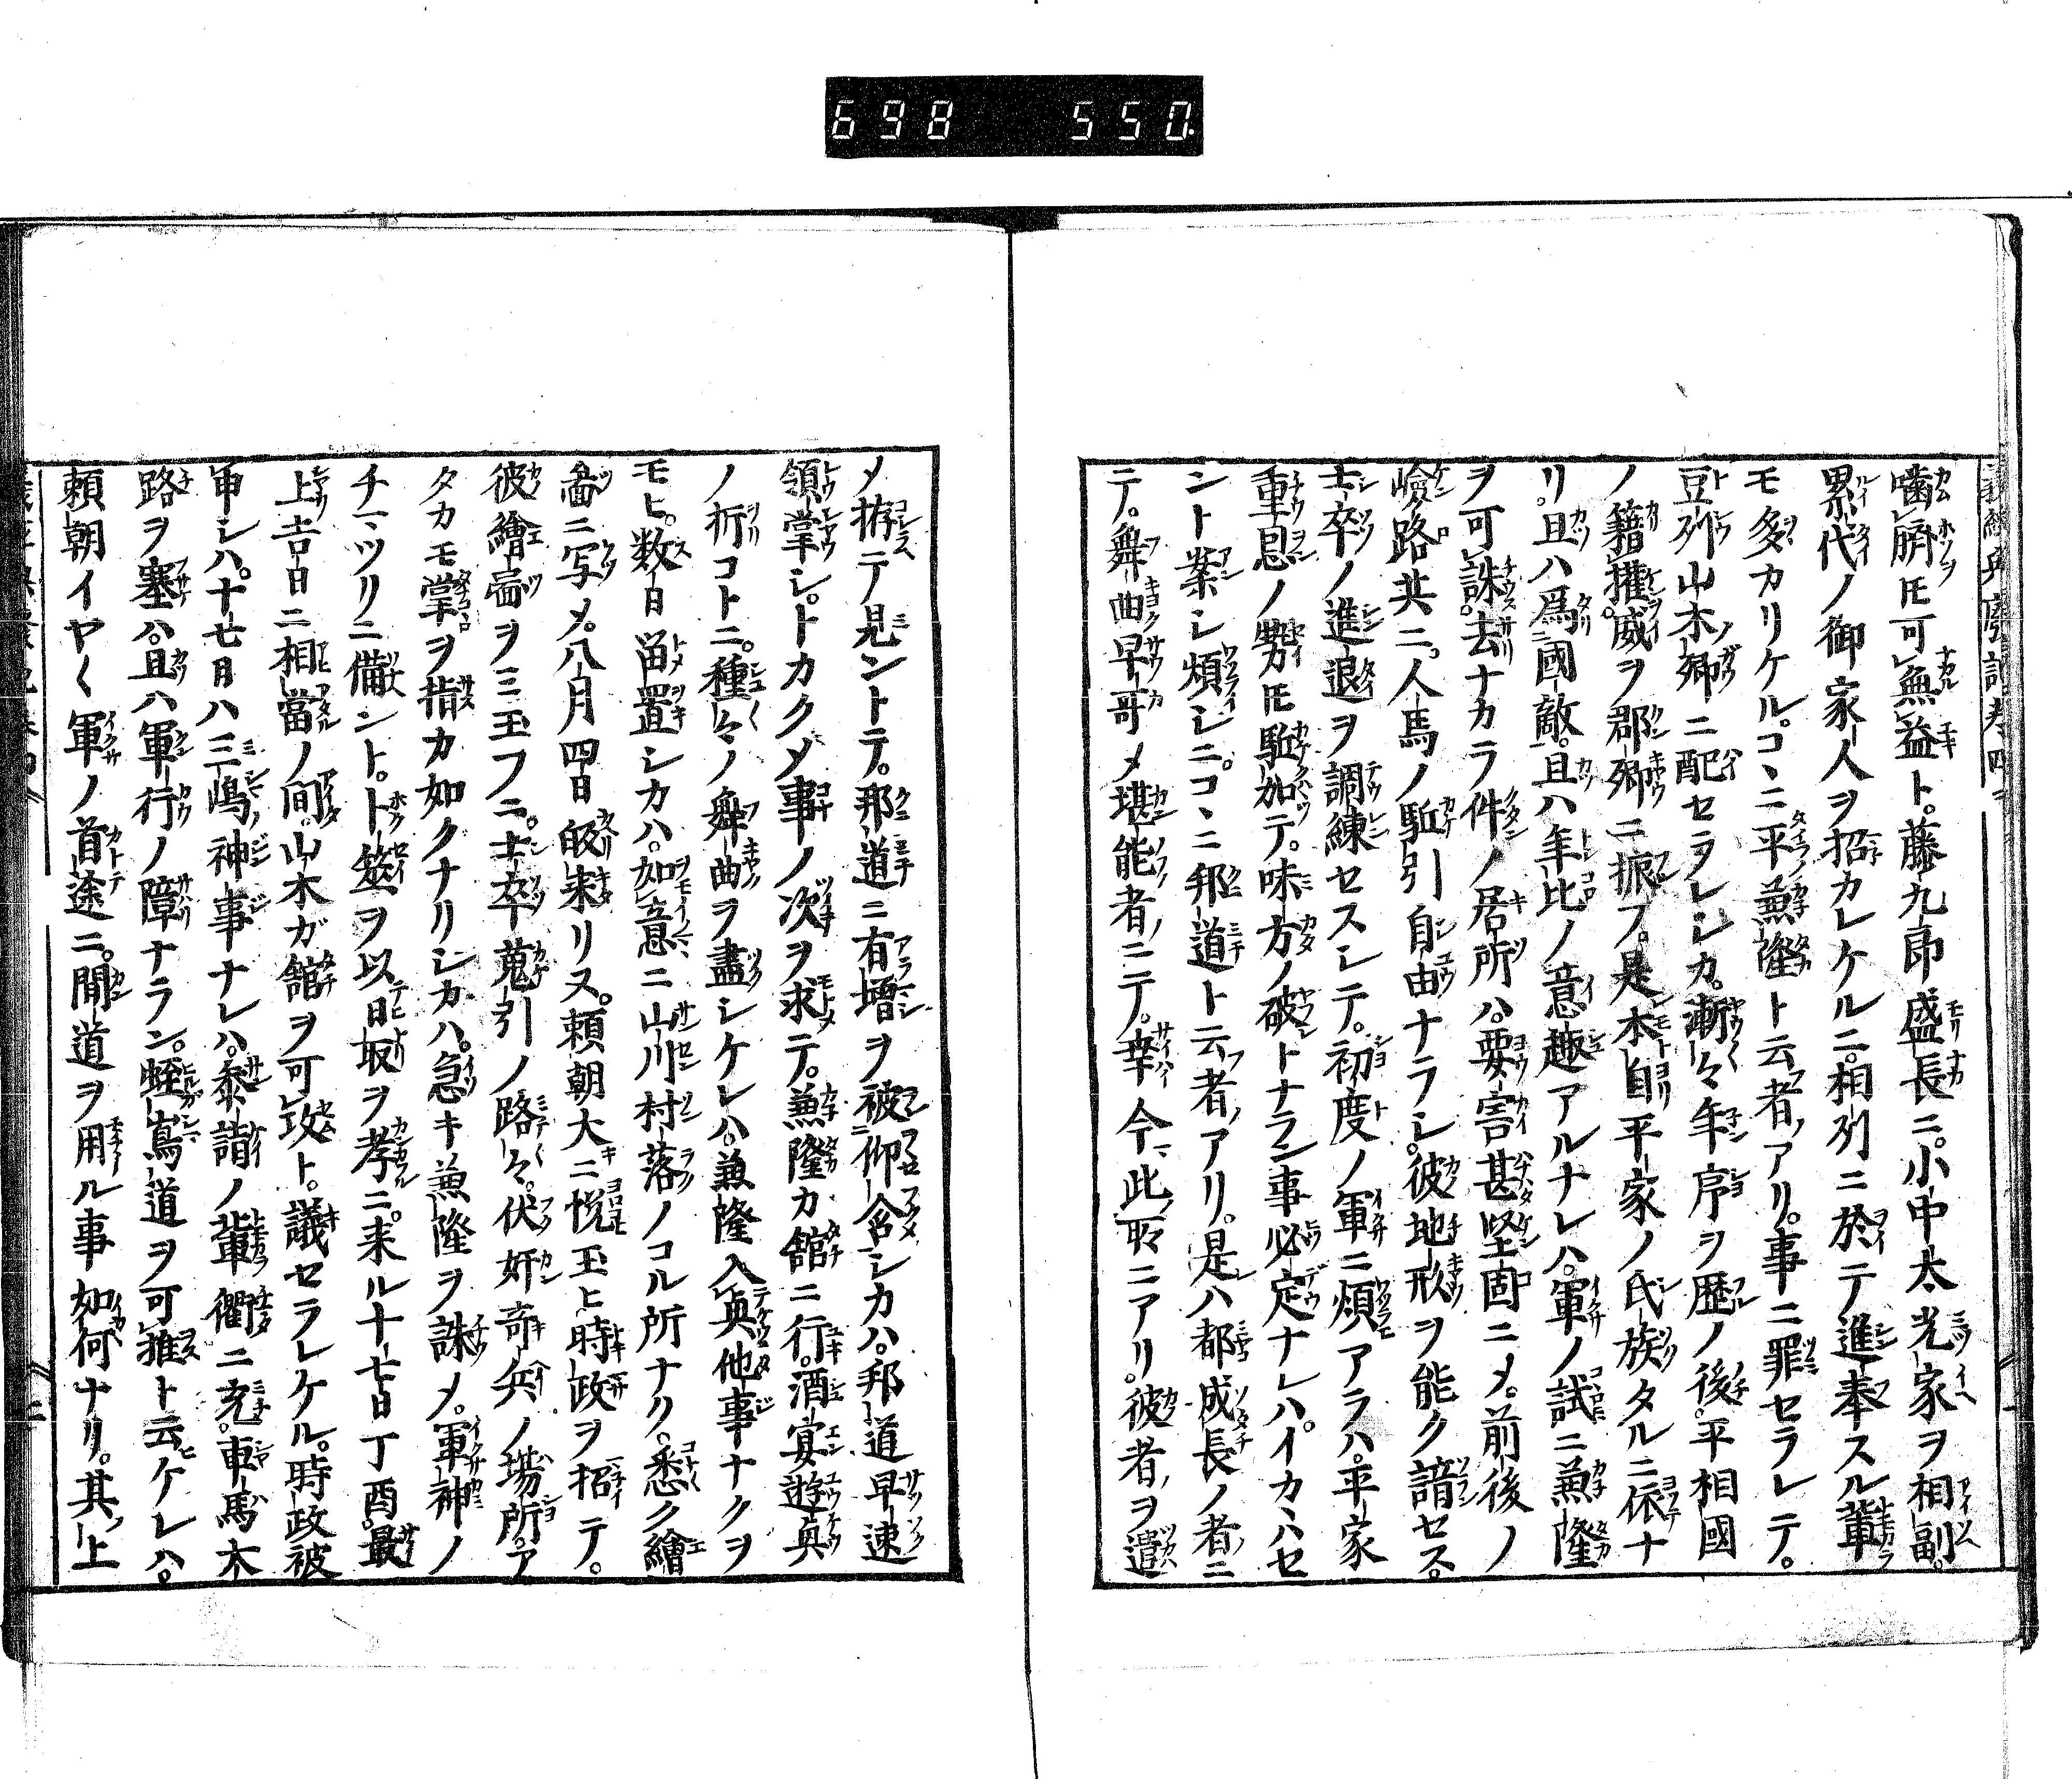 698 550
噛臍トモ可無益ト。藤九郎盛長ニ。小中太光家ヲ相副。
累代ノ御家人ヲ招カレケルニ。相列ニ於テ進奉スル輩
モ多カリケル。コヽニ平兼隆ト云者アリ。事ニ罪セラレテ。
豆州山木郷ニ配セラレシカ。漸々年序ヲ歴ノ後。平相國
ノ籍權威ヲ郡郷ニ振フ。是本自平家ノ氏族タルニ依ナ
リ。且ハ爲國敵。且ハ年比ノ意趣アルナレハ。軍ノ試ニ兼隆
ヲ可誅去ナカラ件ノ居所ハ。要害甚堅固ニメ。前後ノ
嶮路共ニ。人馬ノ駈引自由ナラシ。彼地形ヲ能ク諳セス。
士卒ノ進退ヲ調練セスシテ。初度ノ軍ニ煩アラハ。平家
重恩ノ勢トモ駈加テ。味方ノ破トナラン事必定ナレハ。イカヽハセ
ント案シ煩シニ。コヽニ邦道ト云者アリ。是ハ都成長ノ者ニ
テ。舞曲早哥メ堪能者ニテ。幸今此所ニアリ。彼者ヲ遣
メ拵テ見ントテ。那道ニ有増ヲ被仰含シカハ。邦道早速
領掌シ。トカクメ事ノ次ヲ求テ。兼隆カ舘ニ行。酒宴遊興
ノ折コトニ。種々ノ舞曲ヲ盡シケレハ。兼隆入興他事ナクヲ
モヒ。数日留置シカハ。如意ニ山川村落ノコル所ナク。悉ク繪
啚ニ写メ。八月四日皈来リヌ。頼朝大ニ悦玉ヒ時政ヲ招テ。
彼繪啚ヲミ玉フニ。士卒蒐引ノ路々。伏奸奇兵ノ場所。ア
タカモ掌ヲ指カ如クナリシカハ。急キ兼隆ヲ誅メ。軍神ノ
チマツリニ備ント。卜筮ヲ以日取ヲ考ニ。来ル十七日丁酉。最
上吉日ニ相當ノ間。山木ガ舘ヲ可攻ト。議セラレケル。時政被
申シハ。十七日ハ三嶋神事ナレハ。參詣ノ輩衢ニ充。車馬木
路ヲ塞ハ。且ハ軍行ノ障ナラン。蛭嶌道ヲ可推ト云ケレハ。
頼朝イヤ〱軍ノ首途ニ。間道ヲ用ル事如何ナリ。其上